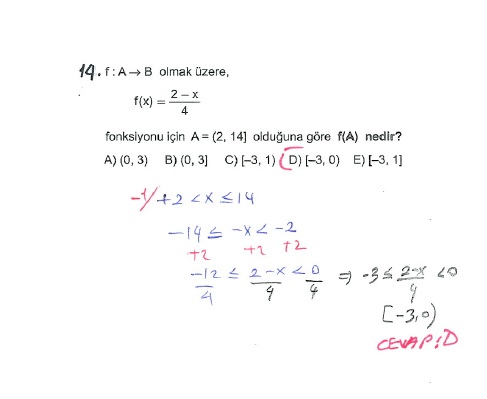 14. f : A → B olmak üzere,
f(x) = (2 – x)/4
fonksiyonu için A = (2, 14] olduğuna göre f(A) nedir?
A) (0, 3) B) (0, 3] C) [–3, 1) D) [–3, 0) E) [–3, 1]
-1/ +2 < x ≤ 14
-14 ≤ -x < -2
+2 +2 +2
-12/4 ≤ (2-x)/4 < 0/4 ⇒ -3 ≤ (2-x)/4 < 0
[-3,0)
CEVAP: D